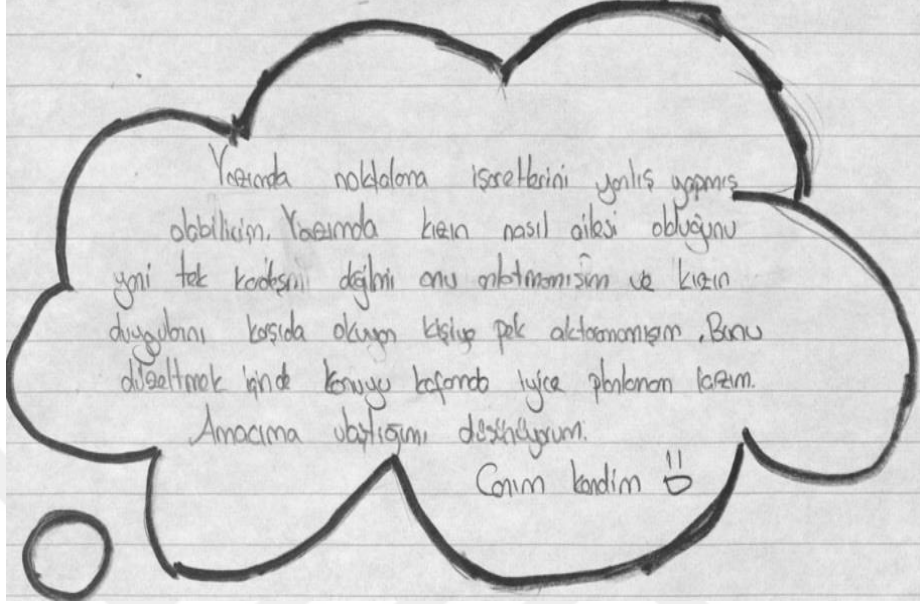 Yazımda noktalama işaretlerini yanlış yapmış
olabilirim. Yazımda kızın nasıl ailesi olduğunu
yani tek kardeşmi değilmi onu anlatmamışım ve kızın
duygularını karşıda okuyan kişiye pek aktaramamışım. Bunu
düzeltmek içinde konuyu kafamda iyice planlamam lazım.
Amacıma ulaştığımı düşünüyorum.
Canım kendim